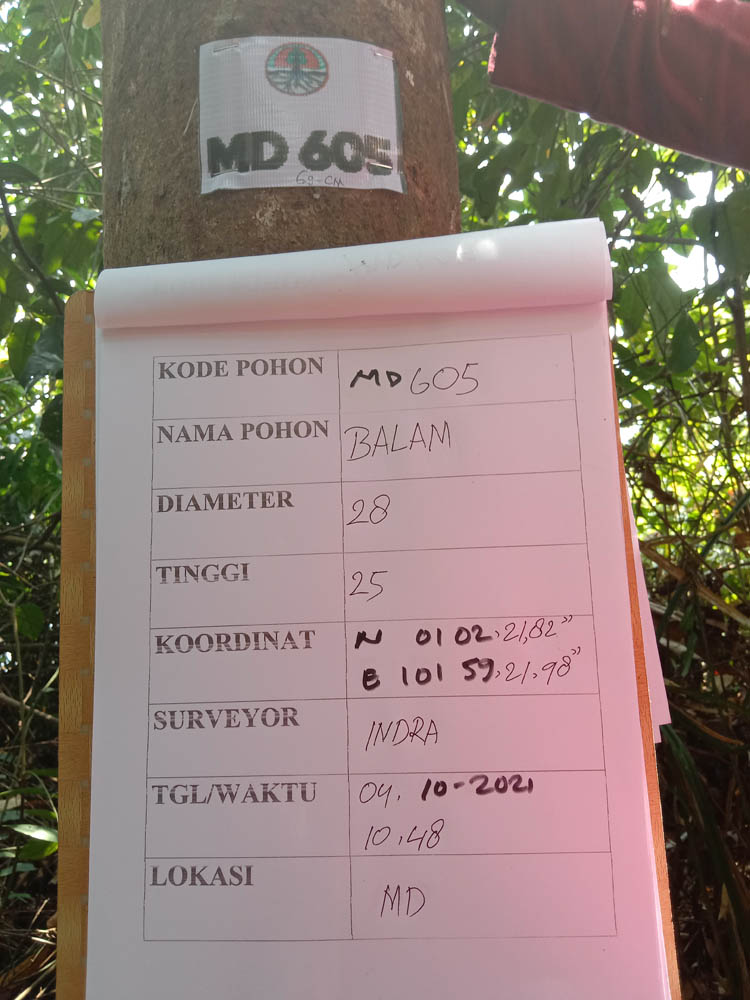 MD 605
69-CM
KODE POHON MD 605
NAMA POHON BALAM
DIAMETER 28
TINGGI 25
KOORDINAT N 01 02, 21,82"
E 101 59, 21,98"
SURVEYOR INDRA
TGL/WAKTU 04. 10-2021
10,48
LOKASI MD